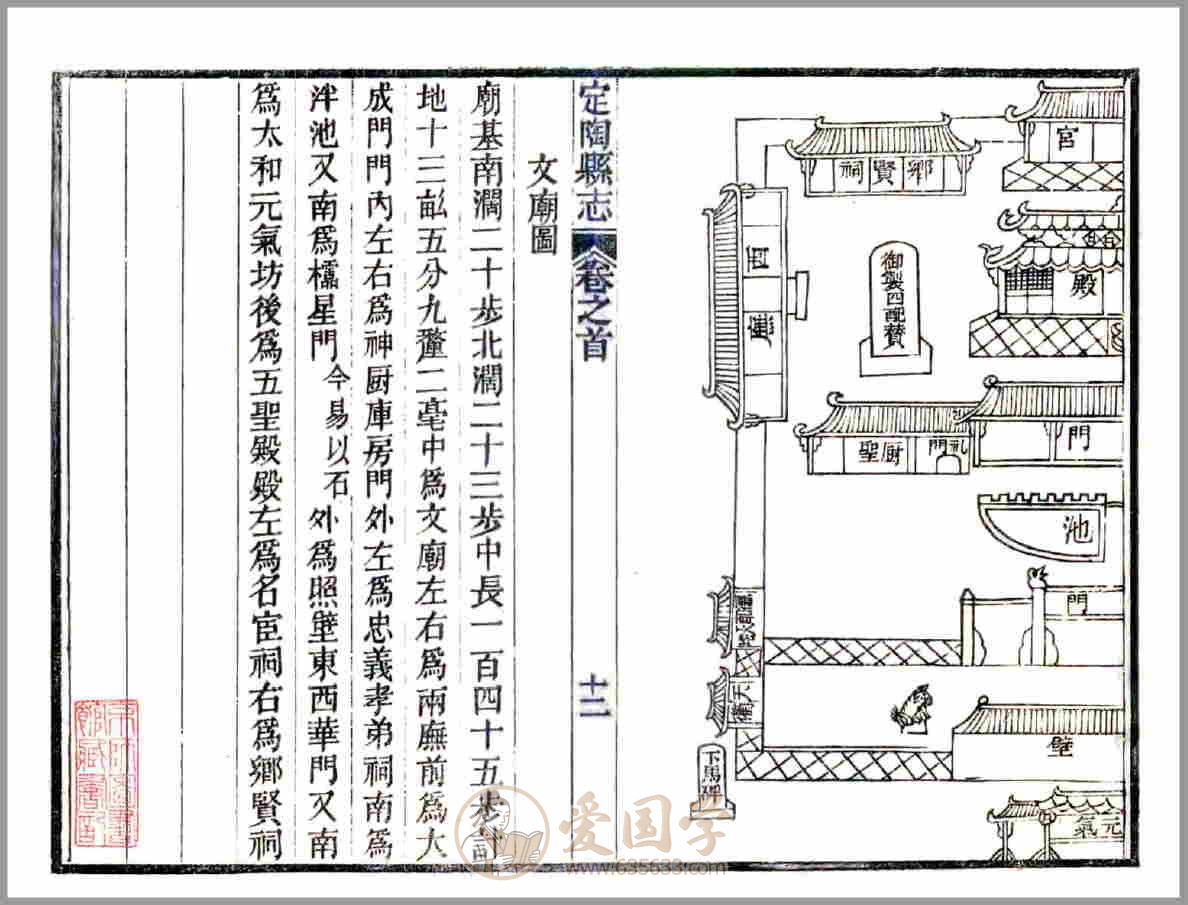 宮
鄉賢祠
殿
御製四配贊
西廡
門
礼門
厨聖
池
門
壁
元氣
下馬碑
定陶縣志 卷之首 十二
文廟圖
廟基南濶二十步北濶二十三步中長一百四十五步計
地十三畝五分九釐二毫中爲文廟左右爲兩廡前爲大
成門門內左右爲神厨庫房門外左爲忠義孝弟祠南爲
泮池又南爲櫺星門今易以石外爲照壁東西華門又南
爲太和元氣坊後爲五聖殿殿左爲名宦祠右爲鄉賢祠
爱国学
www.635633.com